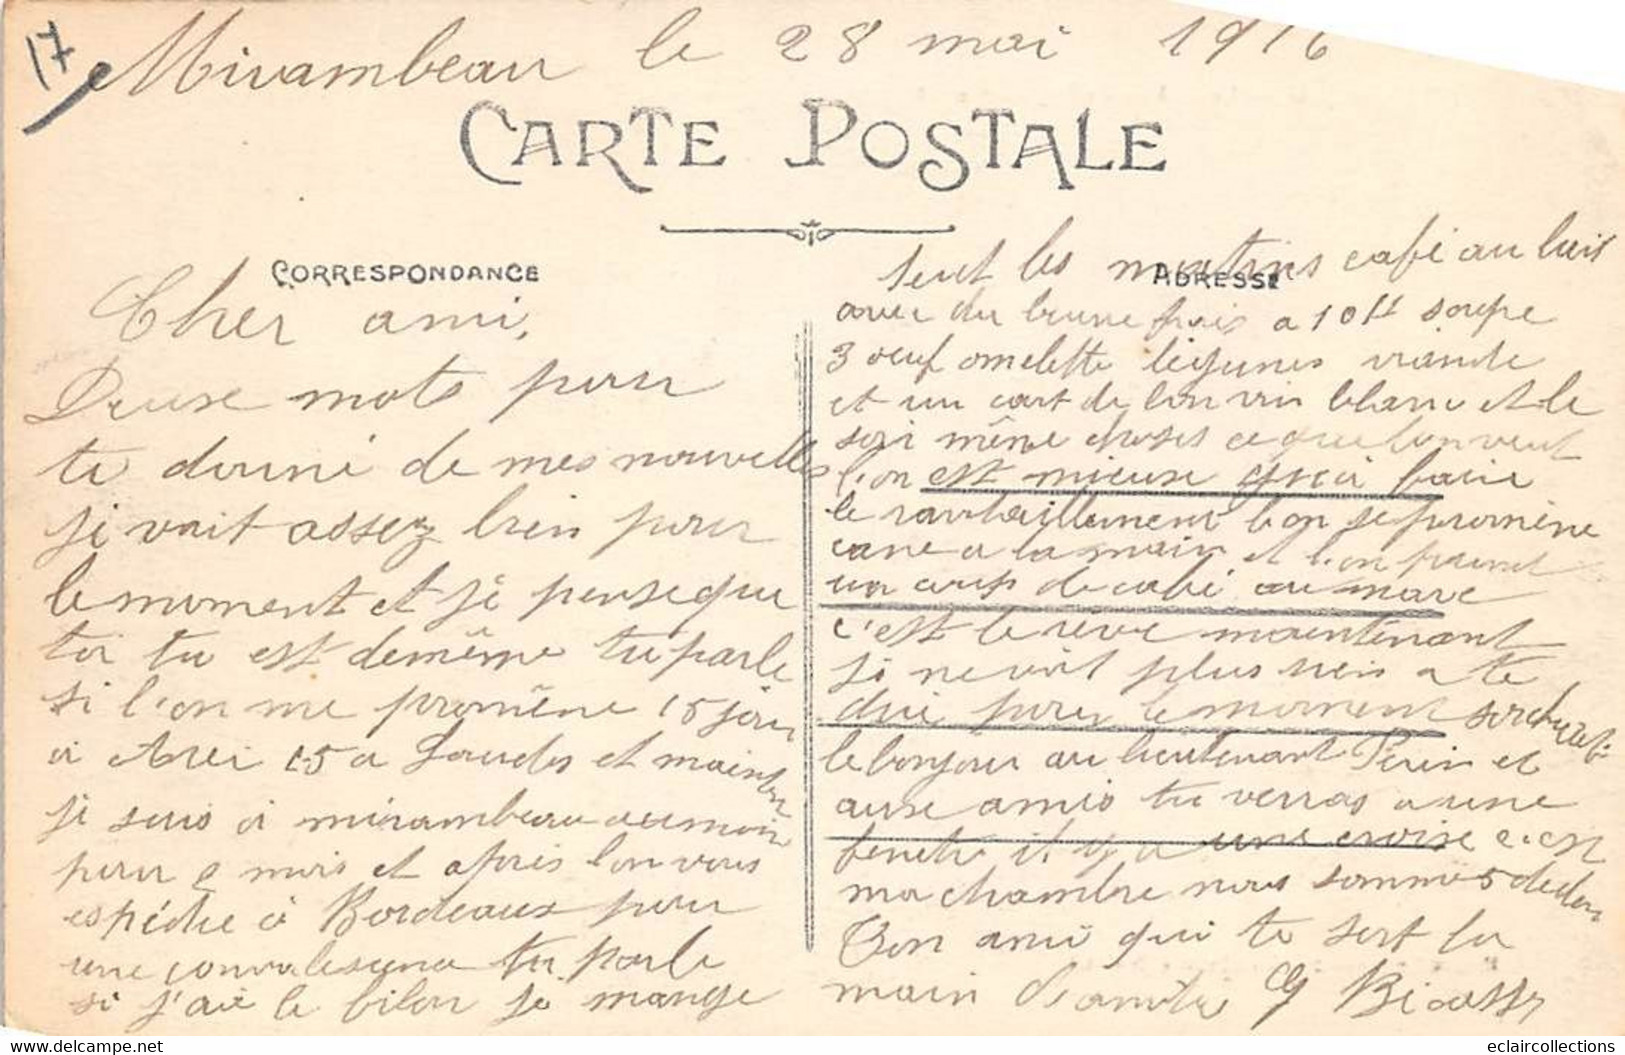 17
Mirambeau le 28 mai 1916
CARTE POSTALE
CORRESPONDANCE
Cher ami,
Deuse mots pour
te donné de mes nouvelles
je vait assez bien pour
le moment et je pense que
toi tu est de même tu parle
si l'on me promène 15 jour
a 15 a et maintenan
je suis a mirambeau au moin
pour 2 mois et après l'on vous
espédie a Bordeaux pour
une convalesence tu parle
si j'ai le filon je mange
ADRESSE
tout les matins café au lais
avec du beurre frais a 10H soupe
3 oeuf omelette légumes viande
et un cart de bon vin blanc et le
soir même choses ce que l'on veut
l'on est mieuse qu'a faire
le ravitaillement l'on se promène
cane a la main et l'on prend
un cous de café au marc
c'est le rêve maintenant
je ne voit plus rien a te
dire pour le moment
le bonjour au lieutenant Perin et
ause amis tu verras a une
fenetre il y a une croise c'est
ma chambre nous sommes 5 dedan
Ton ami qui te sert la
main d'amitié
eclaircollections
www.delcampe.net